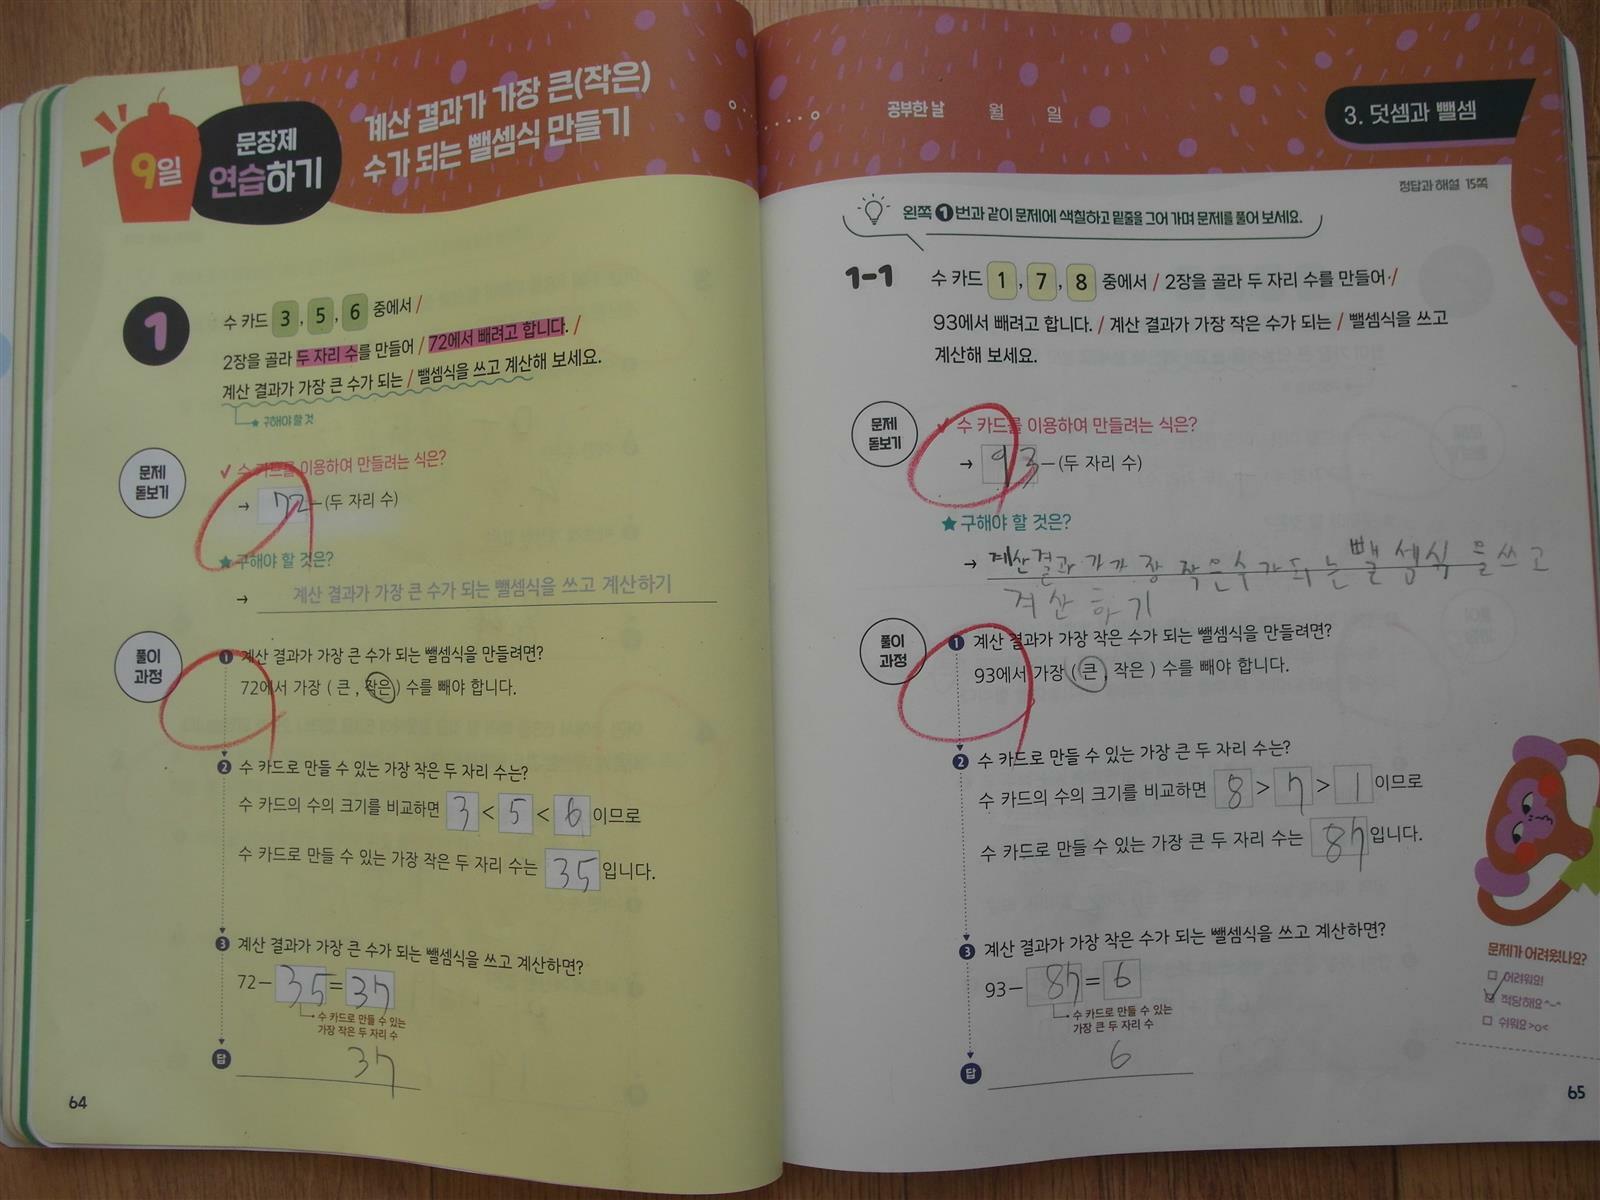 9일
문장제
연습하기
계산 결과가 가장 큰(작은)
수가 되는 뺄셈식 만들기
1
수 카드 3, 5, 6 중에서 /
2장을 골라 두 자리 수를 만들어 / 72에서 빼려고 합니다. /
계산 결과가 가장 큰 수가 되는 / 뺄셈식을 쓰고 계산해 보세요.
★ 구해야 할 것
문제
돋보기
✓ 수 카드를 이용하여 만들려는 식은?
→ 72 - (두 자리 수)
★ 구해야 할 것은?
→ 계산 결과가 가장 큰 수가 되는 뺄셈식을 쓰고 계산하기
풀이
과정
1 계산 결과가 가장 큰 수가 되는 뺄셈식을 만들려면?
72에서 가장 ( 큰 , 작은 ) 수를 빼야 합니다.
2 수 카드로 만들 수 있는 가장 작은 두 자리 수는?
수 카드의 수의 크기를 비교하면 3 < 5 < 6 이므로
수 카드로 만들 수 있는 가장 작은 두 자리 수는 35 입니다.
3 계산 결과가 가장 큰 수가 되는 뺄셈식을 쓰고 계산하면?
72 - 35 = 37
수 카드로 만들 수 있는
가장 작은 두 자리 수
답 37
64
공부한 날 월 일
3. 덧셈과 뺄셈
정답과 해설 15쪽
왼쪽 1 번과 같이 문제에 색칠하고 밑줄을 그어 가며 문제를 풀어 보세요.
1-1
수 카드 1, 7, 8 중에서 / 2장을 골라 두 자리 수를 만들어 /
93에서 빼려고 합니다. / 계산 결과가 가장 작은 수가 되는 / 뺄셈식을 쓰고
계산해 보세요.
문제
돋보기
✓ 수 카드를 이용하여 만들려는 식은?
→ 93 - (두 자리 수)
★ 구해야 할 것은?
→ 계산결과가 가장 작은수가되는 뺄셈식을쓰고
계산하기
풀이
과정
1 계산 결과가 가장 작은 수가 되는 뺄셈식을 만들려면?
93에서 가장 ( 큰 , 작은 ) 수를 빼야 합니다.
2 수 카드로 만들 수 있는 가장 큰 두 자리 수는?
수 카드의 수의 크기를 비교하면 8 > 7 > 1 이므로
수 카드로 만들 수 있는 가장 큰 두 자리 수는 87 입니다.
3 계산 결과가 가장 작은 수가 되는 뺄셈식을 쓰고 계산하면?
93 - 87 = 6
수 카드로 만들 수 있는
가장 큰 두 자리 수
답 6
문제가 어려웠나요?
어려워요!
적당해요 ^-^
쉬워요 >o<
65